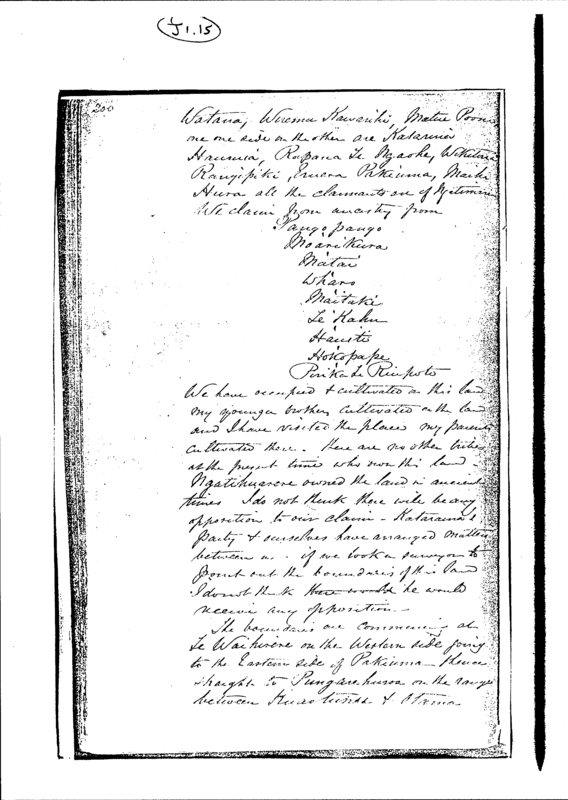 J1.15
200
Watana, Wiremu Kawariki, Matiu Poono
one one side on the other are Katarina
Hauraia, Rupana Te Ngaohe, Wikitoria
Rangipiki, Emera Pakiuma, Maihi
Hura all the claimants are of
We claim from ancestry from
Pangopango
Moarikura
Matai
Wharo
Maitaki
Te Kahu
Hauiti
Hokopape
We have occupied & cultivated on this land
my younger brothers cultivated on the land
and I have visited the place my parents
cultivated there. There are no other tribes
at the present time who own this land -
Ngatihuarere owned the land in ancient
times I do not think there will be any
opposition to our claim - Katarama's
party & ourselves have arranged matters
between us. if we took a surveyor to
point out the boundaries of this land
I do not think there would he would
receive any opposition. -
The boundaries are commencing at
Te Waihirere on the Western side going
to the Eastern side of Pakiuma thence
straight to Pungarehuroa on the range
between & Otama